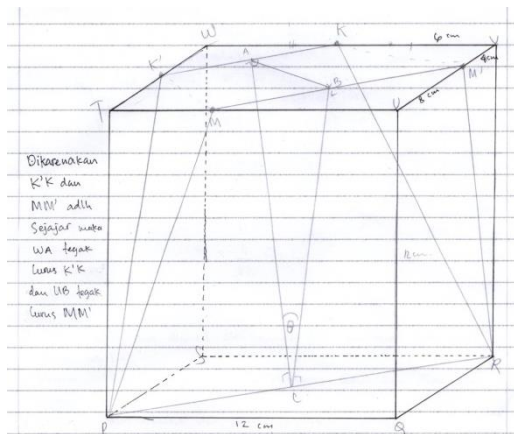 W
K
6 cm
V
K'
A
4cm
M'
B
8 cm
T
M
U
Dikarenakan
K'K dan
MM' adlh
Sejajar maka
WA tegak
lurus K'K
dan UB tegak
lurus MM'
12cm
θ
S
R
C
P
12 cm
Q